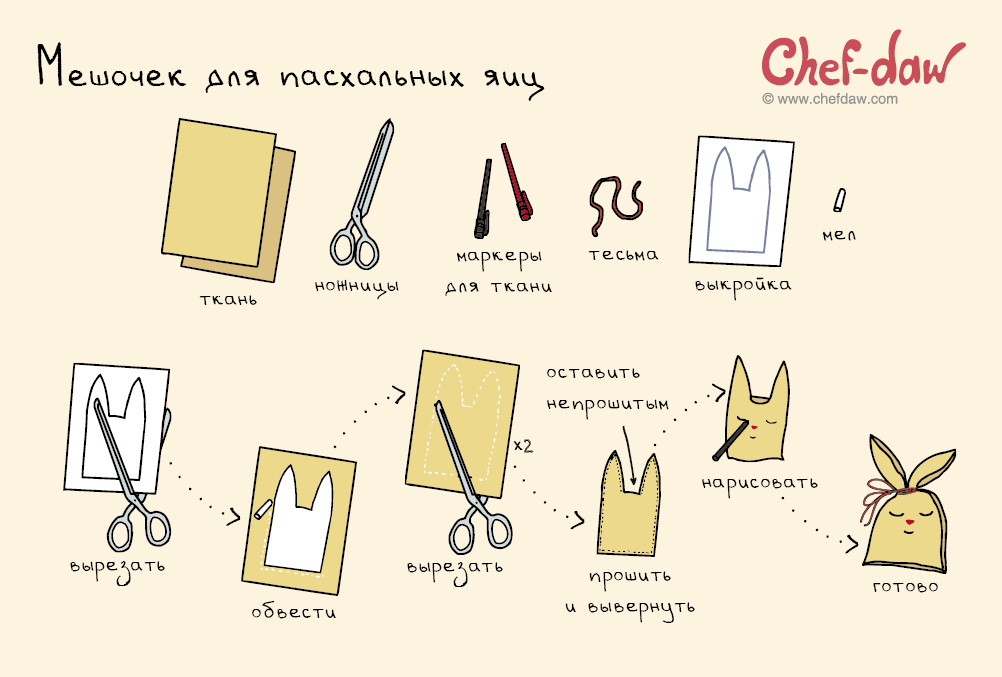 Мешочек для пасхальных яиц
Chef-daw
© www.chefdaw.com
ткань
ножницы
маркеры
для ткани
тесьма
выкройка
мел
вырезать
обвести
вырезать
x2
оставить
непрошитым
прошить
и вывернуть
нарисовать
готово